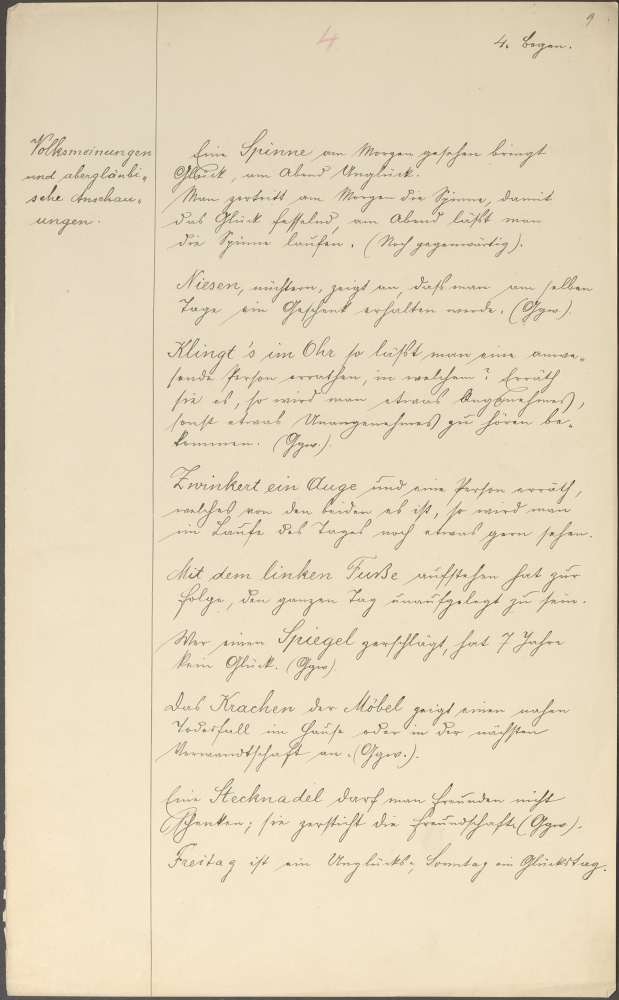 9
4
4. Bogen.
Volksmeinungen
und abergläubi-
sche Anschau-
ungen.
Eine Spinne am Morgen gesehen bringt
Glück, am Abend Unglück.
Man zertritt am Morgen die Spinne, damit
das Glück fesselnd, am Abend läßt man
die Spinne laufen. (Noch gegenwärtig).
Niesen, nüchtern, zeigt an, daß man am selben
Tage ein Geschenk erhalten werde. (Ggw).
Klingt's im Ohr so läßt man eine anwe-
sende Person errathen, in welchem? Erräth
sie es, so wird man etwas Angenehmes,
sonst etwas Unangenehmes zu hören be-
kommen. (Ggw).
Zwinkert ein Auge und eine Person erräth,
welches von den beiden es ist, so wird man
im Laufe des Tages noch etwas gern sehen.
Mit dem linken Fuße aufstehen hat zur
Folge, den ganzen Tag unaufgelegt zu sein.
Wer einen Spiegel zerschlägt, hat 7 Jahre
kein Glück. (Ggw)
Das Krachen der Möbel zeigt einen nahen
Todesfall im Hause oder in der nächsten
Verwandtschaft an. (Ggw.).
Eine Stecknadel darf man Freunden nicht
schenken; sie zersticht die Freundschaft. (Ggw).
Freitag ist ein Unglücks-, Sonntag ein Glückstag.